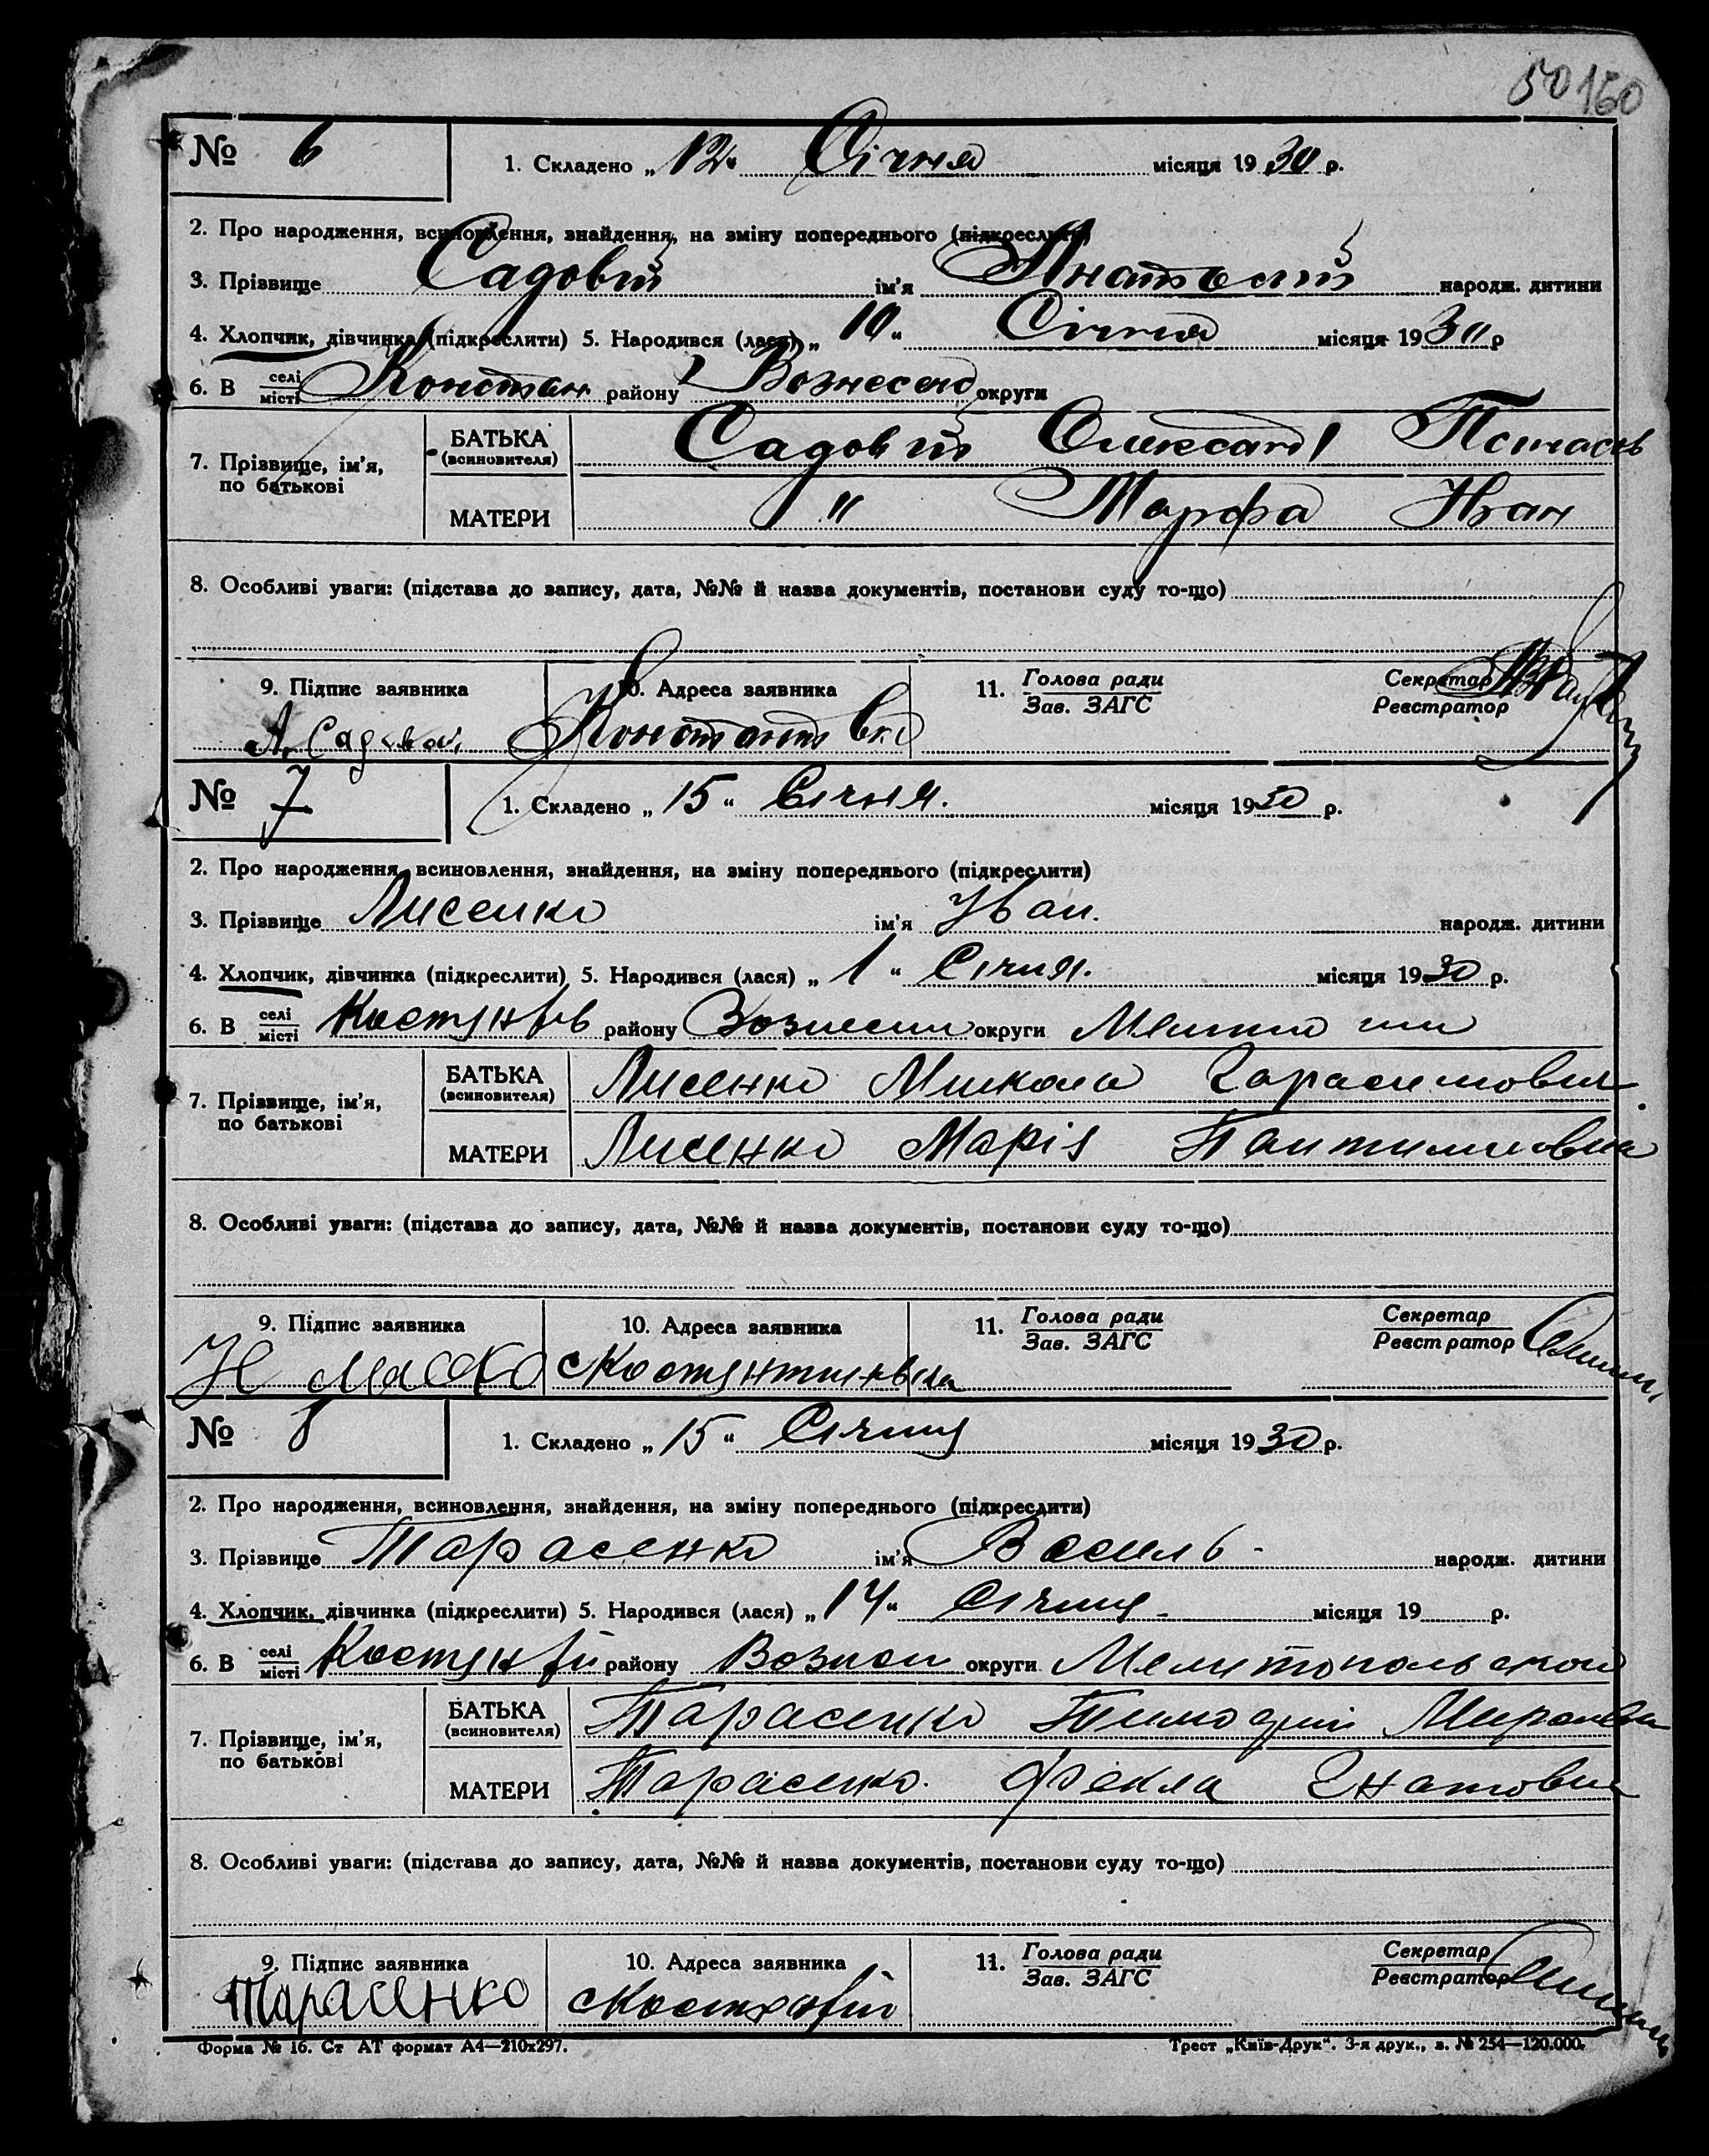 50 160
№ 6
1. Складено „12“ Січня місяця 1930 р.
2. Про народження, всиновлення, знайдення, на зміну попереднього (підкреслити)
3. Прізвище Садовій ім'я Анатолій народж. дитини
4. Хлопчик, дівчинка (підкреслити) 5. Народився (лася) „10“ Січня місяця 1930 р
6. В селі місті Констан району Вознесенс округи
7. Прізвище, ім'я, по батькові
БАТЬКА (всиновителя) Садовій Олександ
МАТЕРИ " Марфа Іван
8. Особливі уваги: (підстава до запису, дата, №№ й назва документів, постанови суду то-що)
9. Підпис заявника 10. Адреса заявника 11. Голова ради Зав. ЗАГС Секретар Реєстратор
А. Садовой
№ 7
1. Складено „15“ Січня. місяця 1930 р.
2. Про народження, всиновлення, знайдення, на зміну попереднього (підкреслити)
3. Прізвище Лисенко ім'я Іван. народж. дитини
4. Хлопчик, дівчинка (підкреслити) 5. Народився (лася) „1“ Січня. місяця 1930 р.
6. В селі місті району округи
7. Прізвище, ім'я, по батькові
БАТЬКА (всиновителя) Лисенко Микола Гарасимович
МАТЕРИ Лисенко Марія
8. Особливі уваги: (підстава до запису, дата, №№ й назва документів, постанови суду то-що)
9. Підпис заявника 10. Адреса заявника 11. Голова ради Зав. ЗАГС Секретар Реєстратор
Костянтинівка
№ 8
1. Складено „15“ Січня місяця 1930 р.
2. Про народження, всиновлення, знайдення, на зміну попереднього (підкреслити)
3. Прізвище Тарасенко ім'я Василь народж. дитини
4. Хлопчик, дівчинка (підкреслити) 5. Народився (лася) „14“ Січня місяця 19 р.
6. В селі місті району округи Мелитопольской
7. Прізвище, ім'я, по батькові
БАТЬКА (всиновителя) Тарасенко Тимофій
МАТЕРИ Тарасенко Фекла Гнатовна
8. Особливі уваги: (підстава до запису, дата, №№ й назва документів, постанови суду то-що)
9. Підпис заявника 10. Адреса заявника 11. Голова ради Зав. ЗАГС Секретар Реєстратор
Тарасенко
Форма № 16. Ст АТ формат А4—210x297. Трест „Київ-Друк“. 3-я друк., з. № 254—120.000.